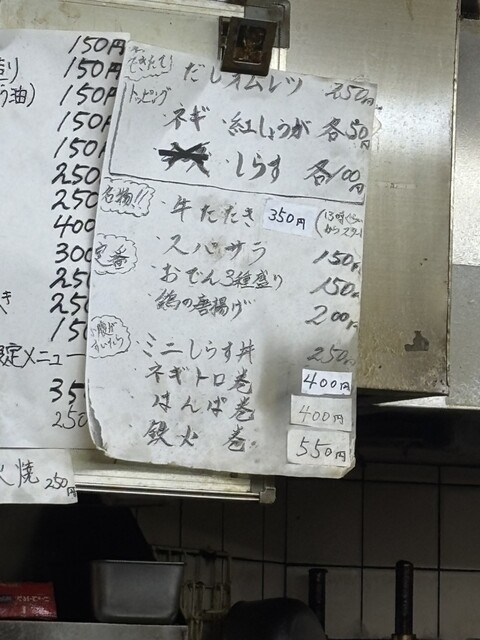 150円
150円
150円
150円
150
250
250
400
300
250
250
150
限定メニュー
35
250
火焼 250円
できたて!
だしオムレツ 250円
トッピング
・ネギ ・紅しょうが 各50円
・しらす 各100円
名物!!
・牛たたき 350円 (13時ぐらいからスタート
定番
・スパサラ 150円
・おでん3種盛り 150円
・鶏の唐揚げ 200円
ミニしらす丼 250円
ネギトロ巻 400円
はんぱ巻 400円
鉄火巻 550円